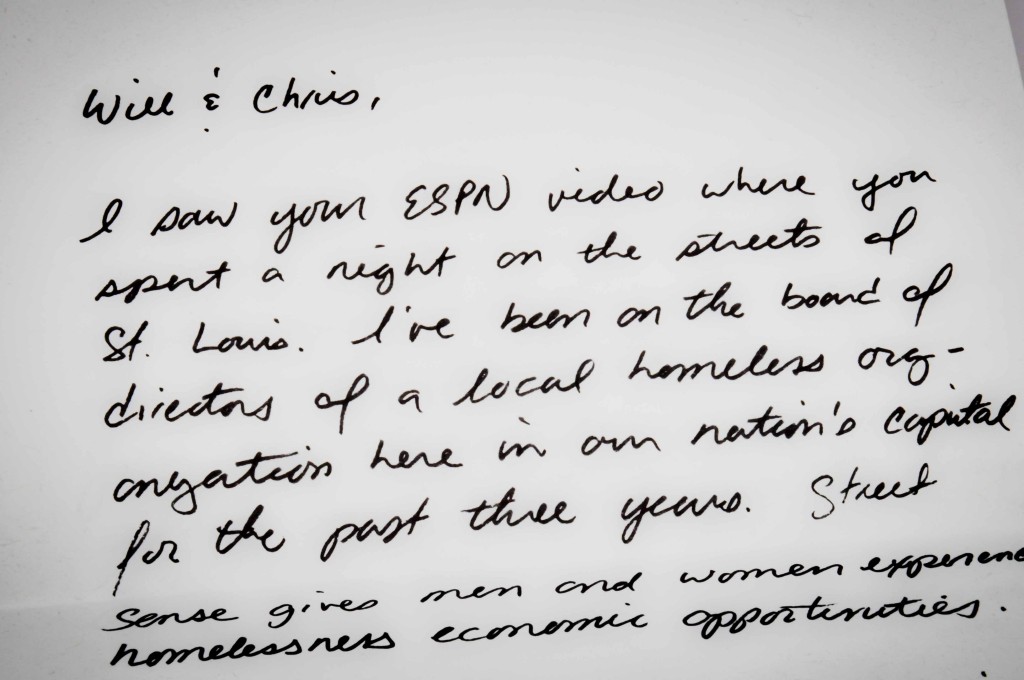 Will & Chris,
I saw your ESPN video where you
spent a night on the streets of
St. Louis. I've been on the board of
directors of a local homeless org-
anization here in our nation's capital
for the past three years. Street
Sense gives men and women experienc
homelessness economic opportunities.